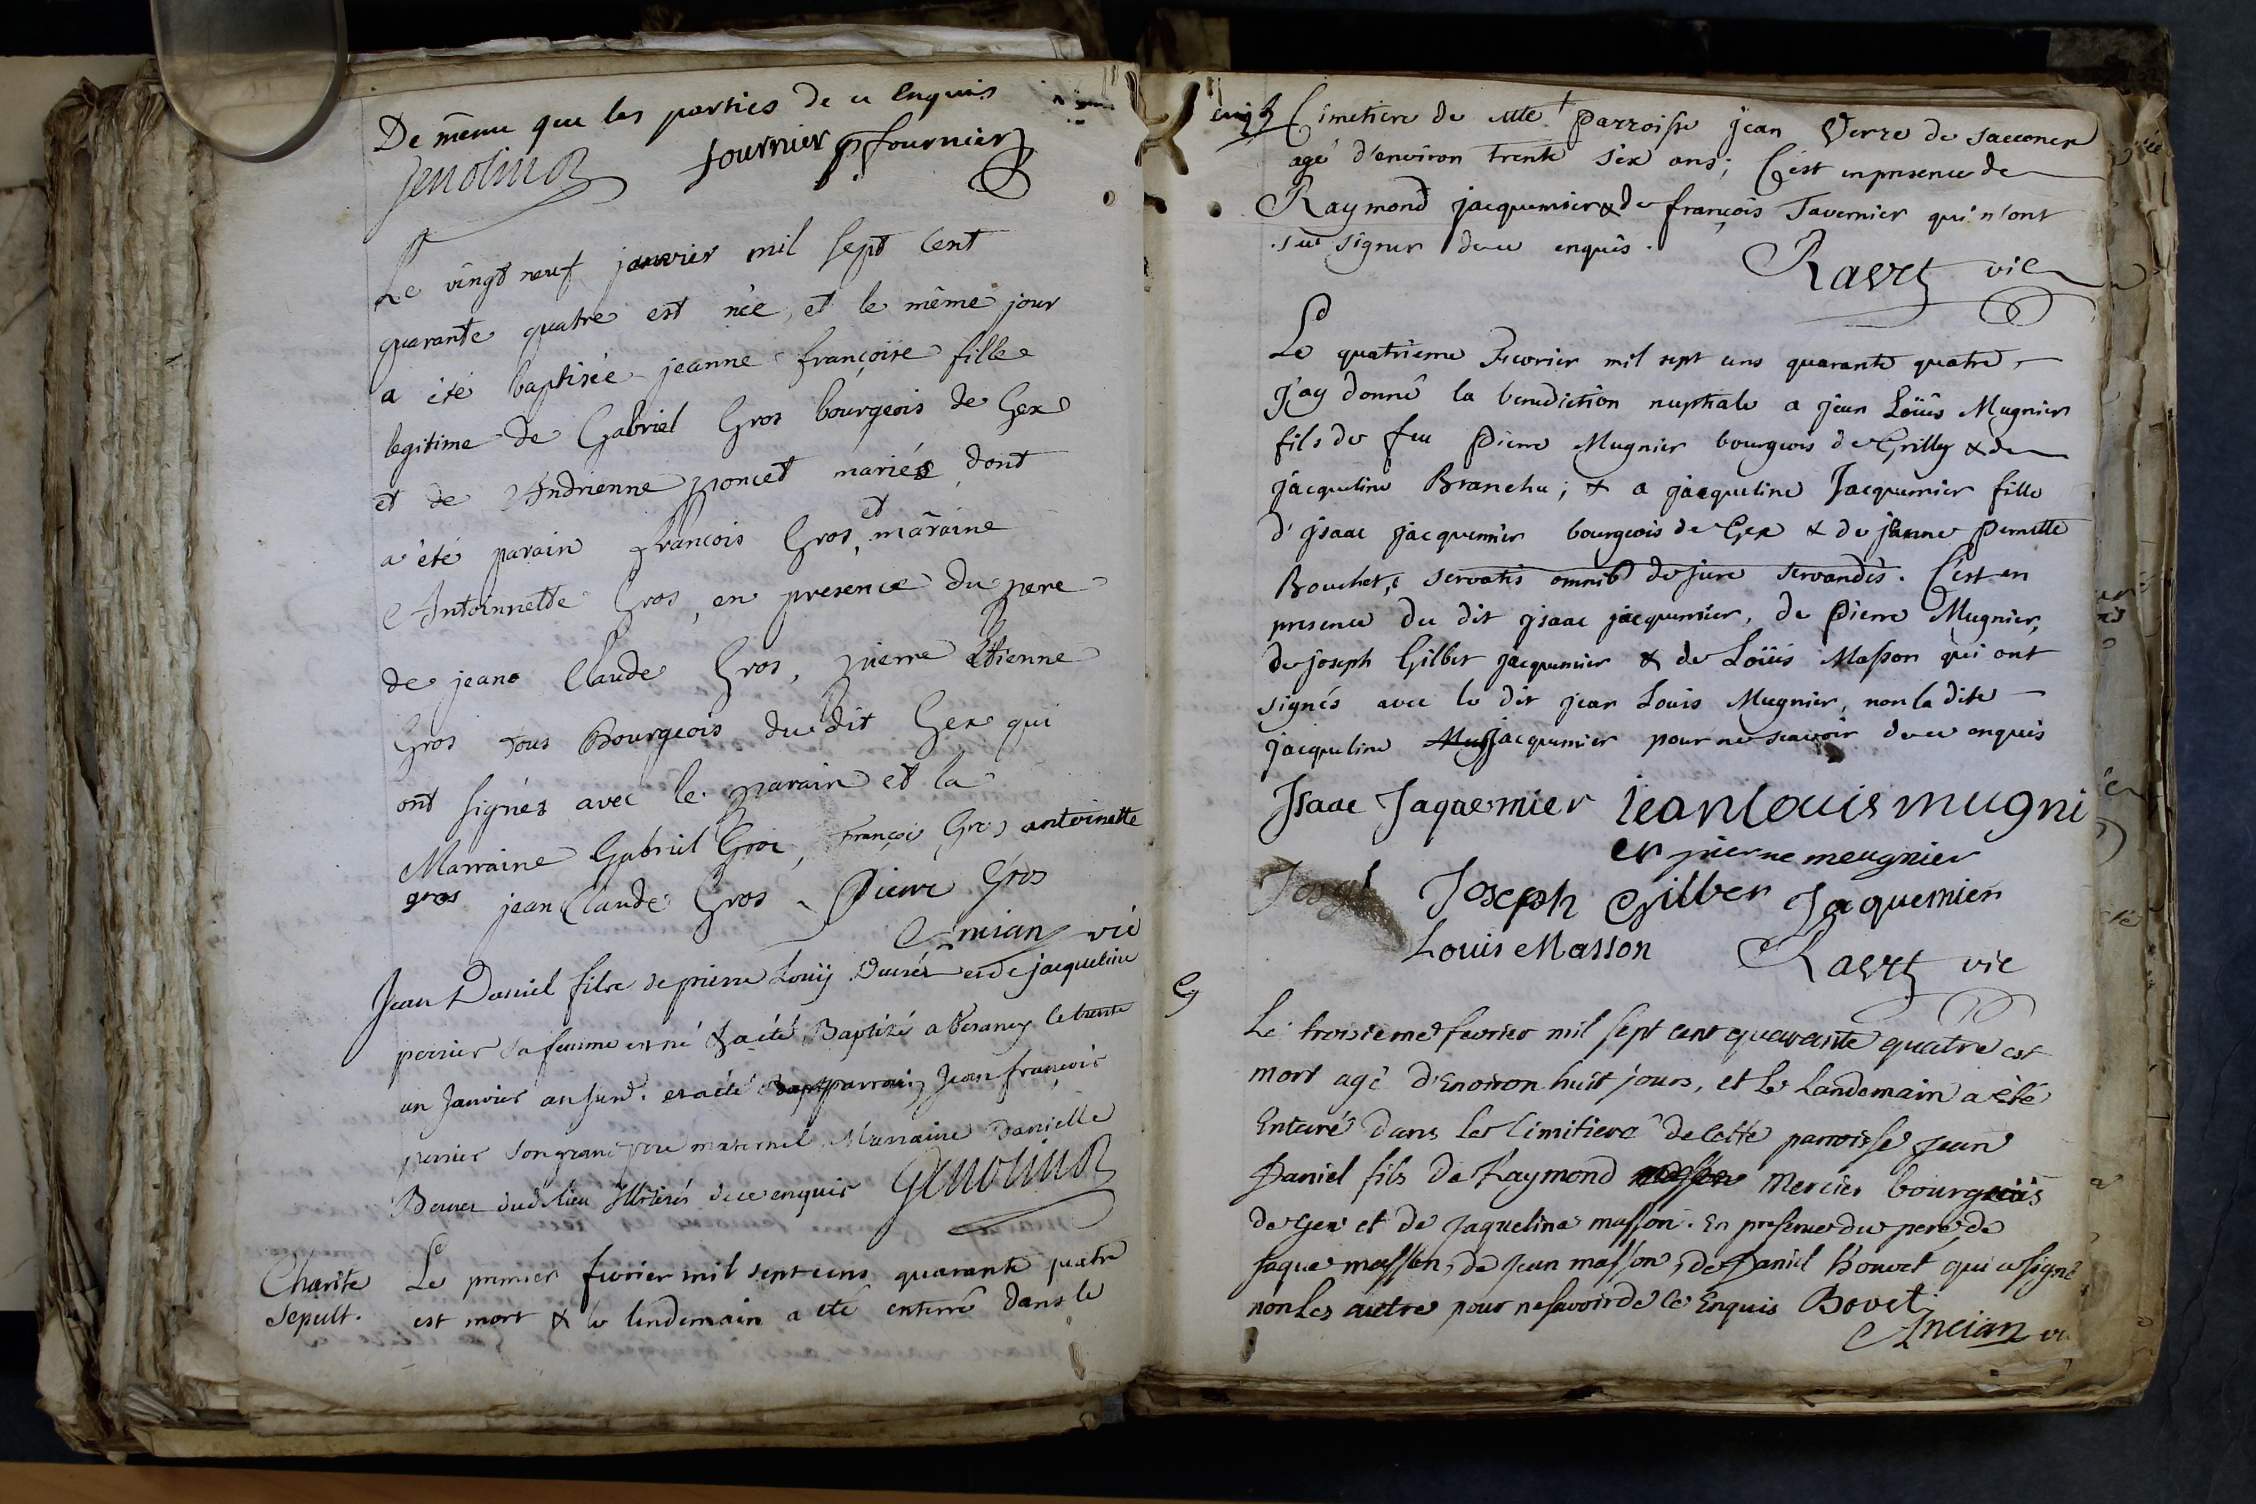 De même que les parties de ce Enquis
Genolina fournier P fournier
Le vingt neuf janvier mil sept cent
quarante quatre est née, et le même jour
a été baptisée jeanne françoise fille
legitime de Gabriel Gros bourgeois de Gex
et de Andrienne poncet mariés, dont
a été parain francois Gros, et maraine
Antoinnette Gros, en presence du pere
de jean Claude Gros, pierre Etienne
Gros tous Bourgeois du dit Gex qui
ont signés avec le parain et la
Marraine Gabriel Gros, François Gros antoinette
gros jean Claude Gros Pierre Gros
Ancian vic
Jean Daniel fils de pierre Louis et de jacqueline
perrier sa femme est né & a été Baptizé a le trente
un Janvier an susd. et a été parrain Jean françois
perrier son grand pere maternel Marraine Danielle
dud. lieu illitérés de ce enquis Genolina
Charite Le premier fevrier mil sept cens quarante quatre
Sepult. est mort & le lendemain a eté enterré dans le
Cimetiere de cette Parroisse jean Verre de sacconex
agé d'environ trente six ans; C'est en presence de
Raymond jacquemier & de françois Tavernier qui n'ont
sûe signer de ce enquis.
Ravet vic
Le quatrieme Fevrier mil sept cens quarante quatre
j'ay donné la benediction nuptiale a jean Loüis Mugnier
fils de feu Pierre Mugnier bourgeois de Grilly & de
jacqueline Branchu; & a jacqueline Jacquemier fille
d'jsaac jacquemier bourgeois de Gex & de jeanne Pernette
Bouchet, servatis omnib. de jure servandis. C'est en
presence du dit jsaac jacquemier, de Pierre Mugnier,
de joseph Gilbert jacquemier & de Loüis Masson qui ont
signés avec le dit jean Louis Mugnier, non la dite
jacqueline Mug jacquemier pour ne scavoir de ce enquis
Isaac Jaquemier ieanlouis mugni
er pierre meugnier
Joseph Joseph Gilber Jaquemier
Louis Masson Ravet vic
Le troisieme fevrier mil sept cent quarante quatre est
mort agé d'Environ huit jours, et Le Landemain a été
Enteré dans Le Cimitiere de Cette parroisse Jean
Daniel fils de Raymond masson Mercier bourgeois
de Gex et de Jaqueline masson. En presence du pere, de
Jaque masson, de Jean masson, de Daniel Bouvet qui a signé
non Les autre pour ne savoir de ce Enquis Bovet
Ancian vi